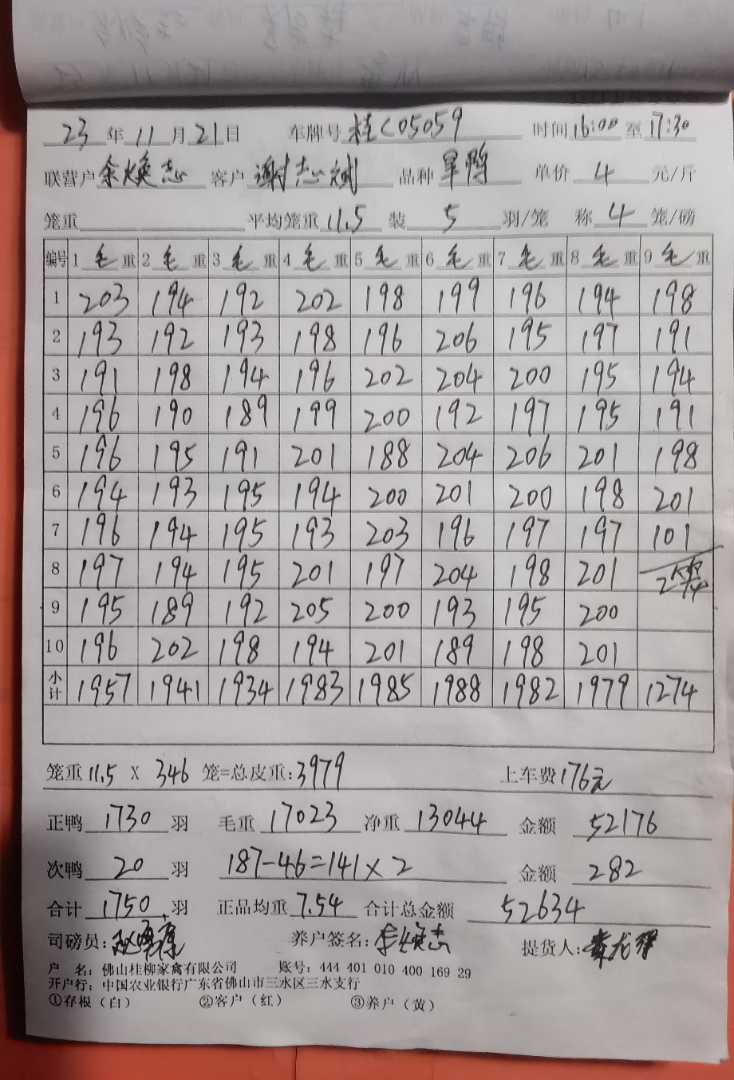 23 年 11 月 21 日 车牌号 桂C05059 时间 16:00 至 17:30
联营户 余焕志 客户 谢志斌 品种 旱鸭 单价 4 元/斤
笼重 平均笼重 11.5 装 5 羽/笼 称 4 笼/磅
编号 1 毛 重 2 毛 重 3 毛 重 4 毛 重 5 毛 重 6 毛 重 7 毛 重 8 毛 重 9 毛 重
1 203 194 192 202 198 199 196 194 198
2 193 192 193 198 196 206 195 197 191
3 191 198 194 196 202 204 200 195 194
4 196 190 189 199 200 192 197 195 191
5 196 195 191 201 188 204 206 201 198
6 194 193 195 194 200 201 200 198 201
7 196 194 195 193 203 196 197 197 101
8 197 194 195 201 197 204 198 201
9 195 189 192 205 200 193 195 200
10 196 202 198 194 201 189 198 201
小计 1957 1941 1934 1983 1985 1988 1982 1979 1274
笼重 11.5 X 346 笼=总皮重: 3979 上车费 176元
正鸭 1730 羽 毛重 17023 净重 13044 金额 52176
次鸭 20 羽 187-46=141×2 金额 282
合计 1750 羽 正品均重 7.54 合计总金额 52634
司磅员: 养户签名: 余焕志 提货人:
户 名: 佛山桂柳家禽有限公司 账号: 444 401 010 400 169 29
开户行: 中国农业银行广东省佛山市三水区三水支行
①存根（白） ②客户（红） ③养户（黄）